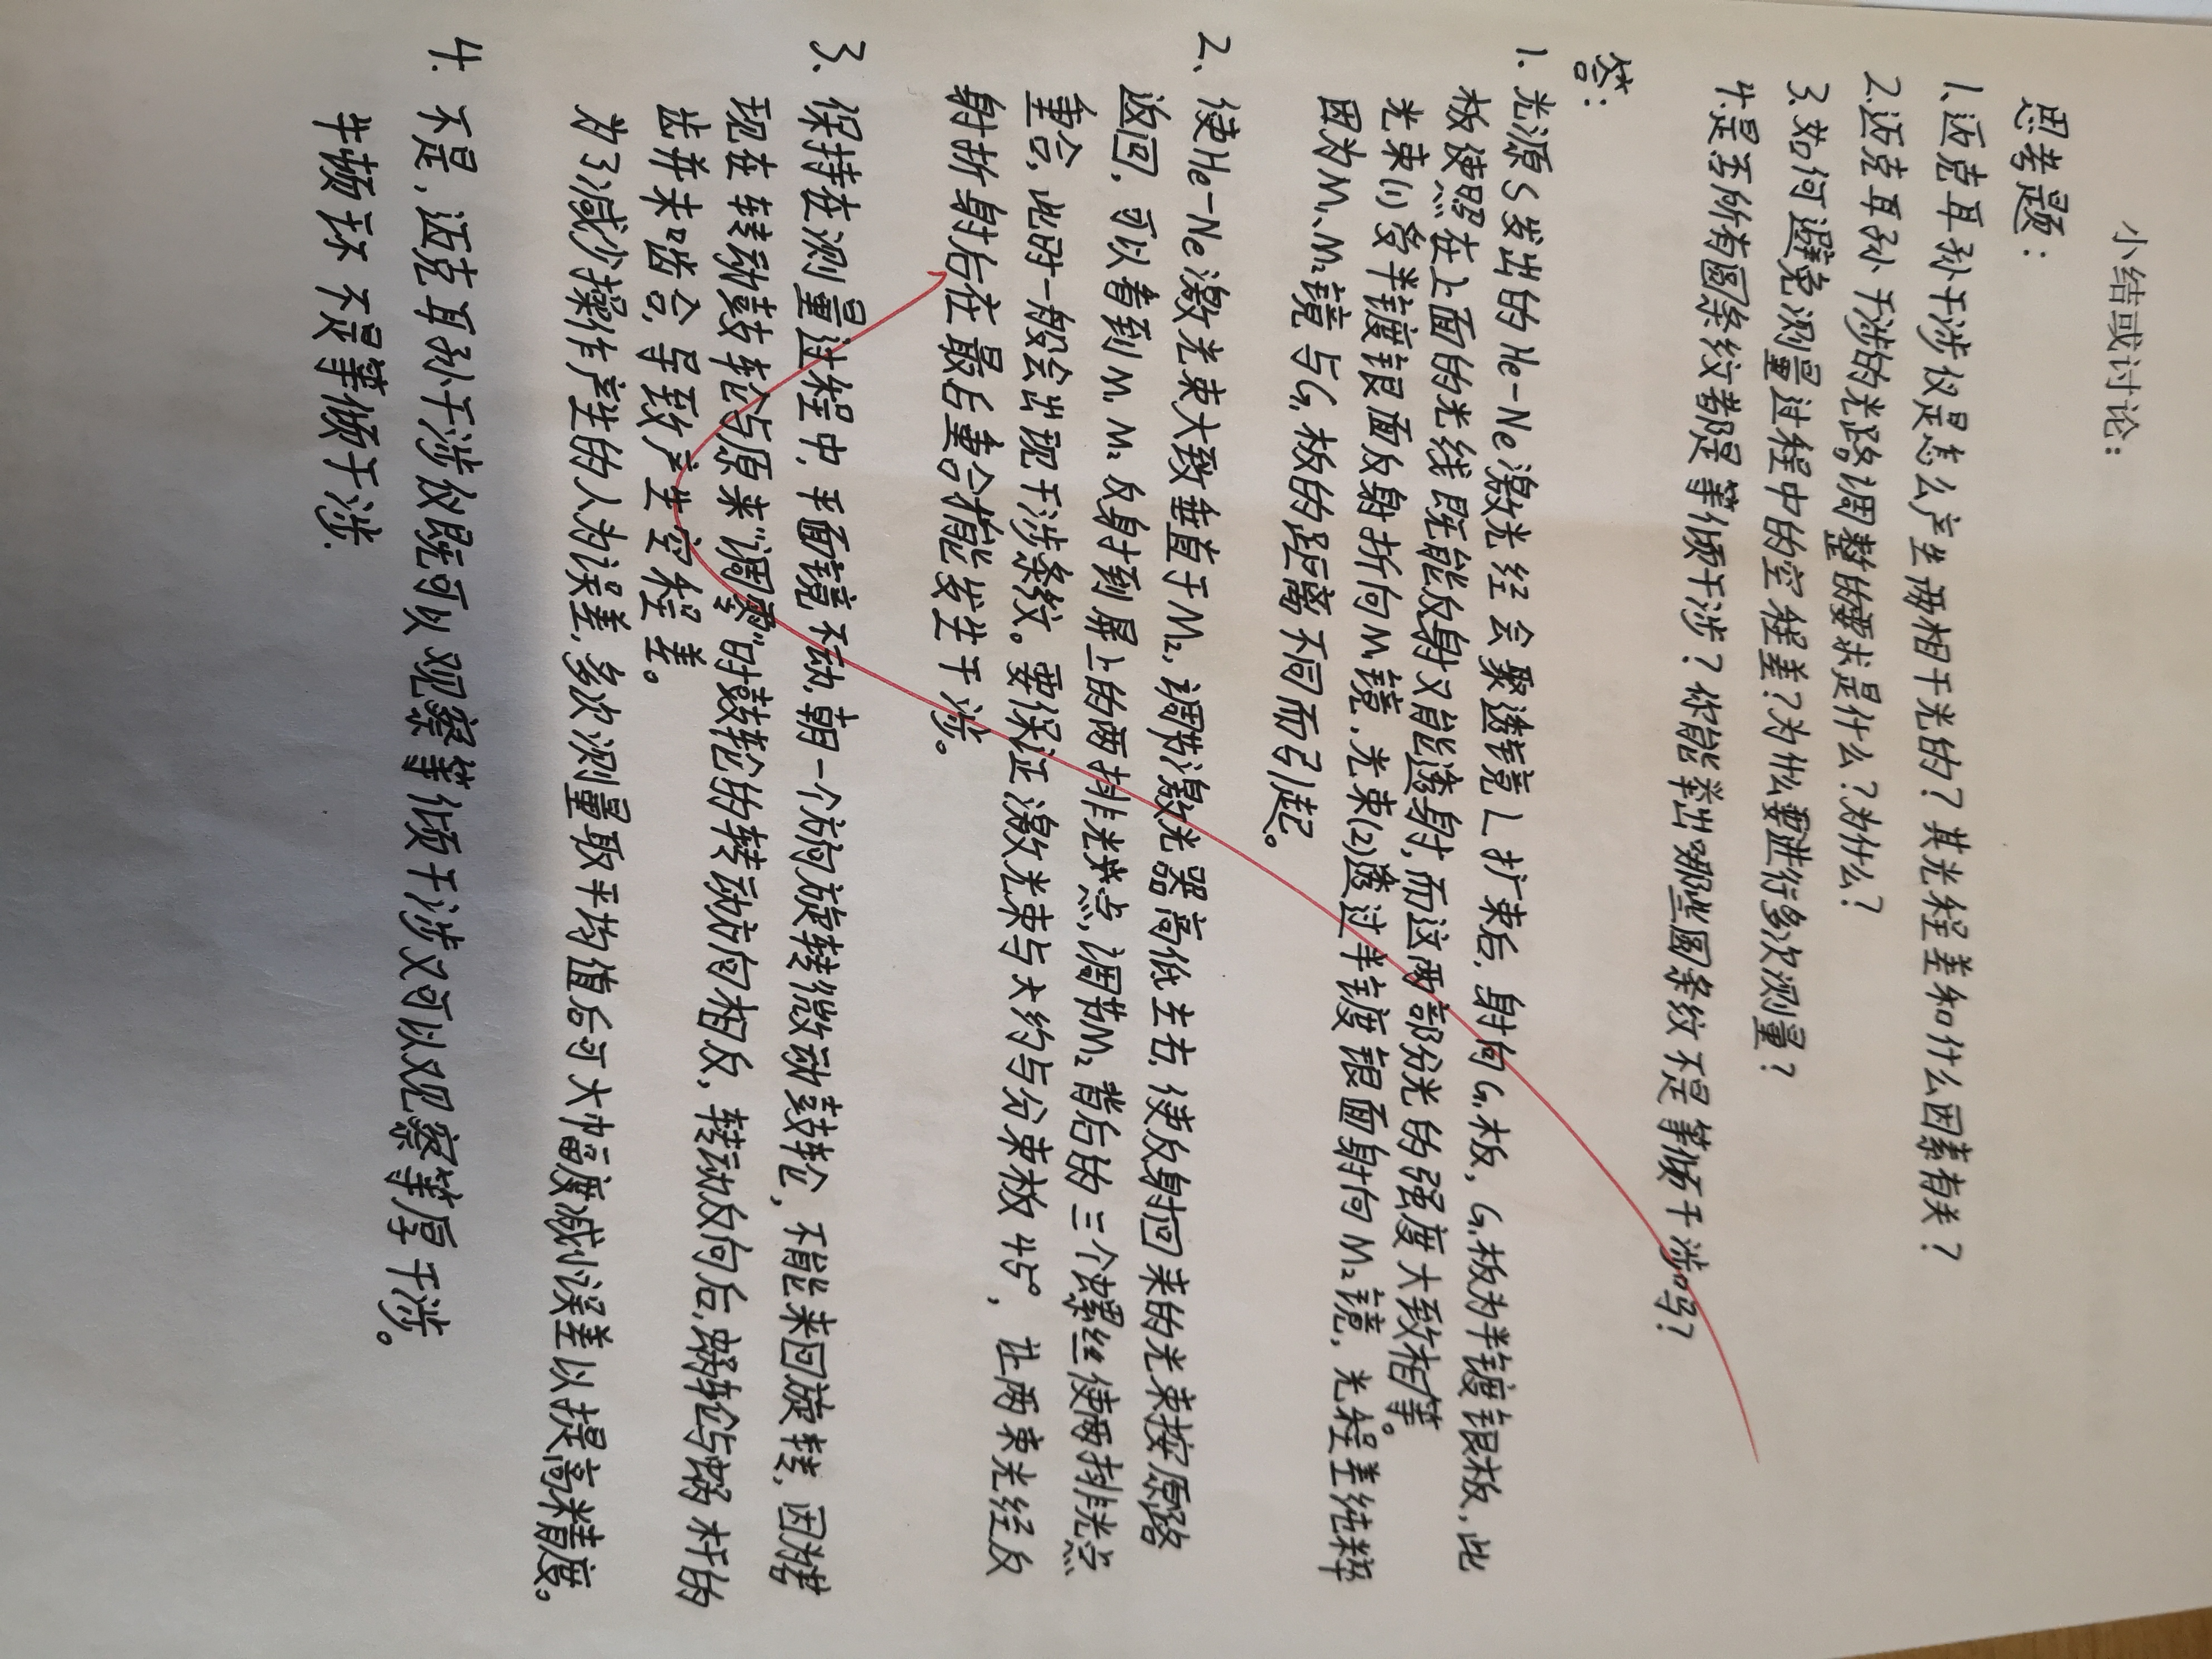 小结或讨论:
思考题:
1、迈克耳孙干涉仪是怎么产生两相干光的?其光程差和什么因素有关?
2.迈克耳孙干涉的光路调整的要求是什么?为什么?
3.如何避免测量过程中的空程差?为什么要进行多次测量?
4.是否所有圆条纹都是等倾干涉?你能举出哪些圆条纹不是等倾干涉吗?
答:
1.光源S发出的He-Ne激光经会聚透镜L扩束后,射向G₁板,G₁板为半镀银板,此
板使照在上面的光线既能反射又能透射,而这两部分光的强度大致相等。
光束(1)受半镀银面反射折向M₁镜,光束(2)透过半镀银面射向M₂镜,光程差纯粹
因为M₁、M₂镜与G₁板的距离不同而引起。
2、使He-Ne激光束大致垂直于M₂,调节激光器高低左右,使反射回来的光束按原路
返回,可以看到M₁M₂反射到屏上的两排光点,调节M₂背后的三个螺丝使两排光点
重合,此时一般会出现干涉条纹。要保证激光束与大约与分束板45°,让两束光经反
射折射后在最后重合才能发生干涉。
3、保持在测量过程中,平面镜不动,朝一个方向旋转微动鼓轮,不能来回旋转,因为若
现在转动鼓轮与原来"调零"时鼓轮的转动方向相反,转动反向后,蜗轮与蜗杆的
齿并未啮合,导致产生空程差。
为了减少操作产生的人为误差,多次测量取平均值后可大幅度减小误差以提高精度。
4.不是,迈克耳孙干涉仪既可以观察等倾干涉又可以观察等厚干涉。
牛顿环不是等倾干涉.